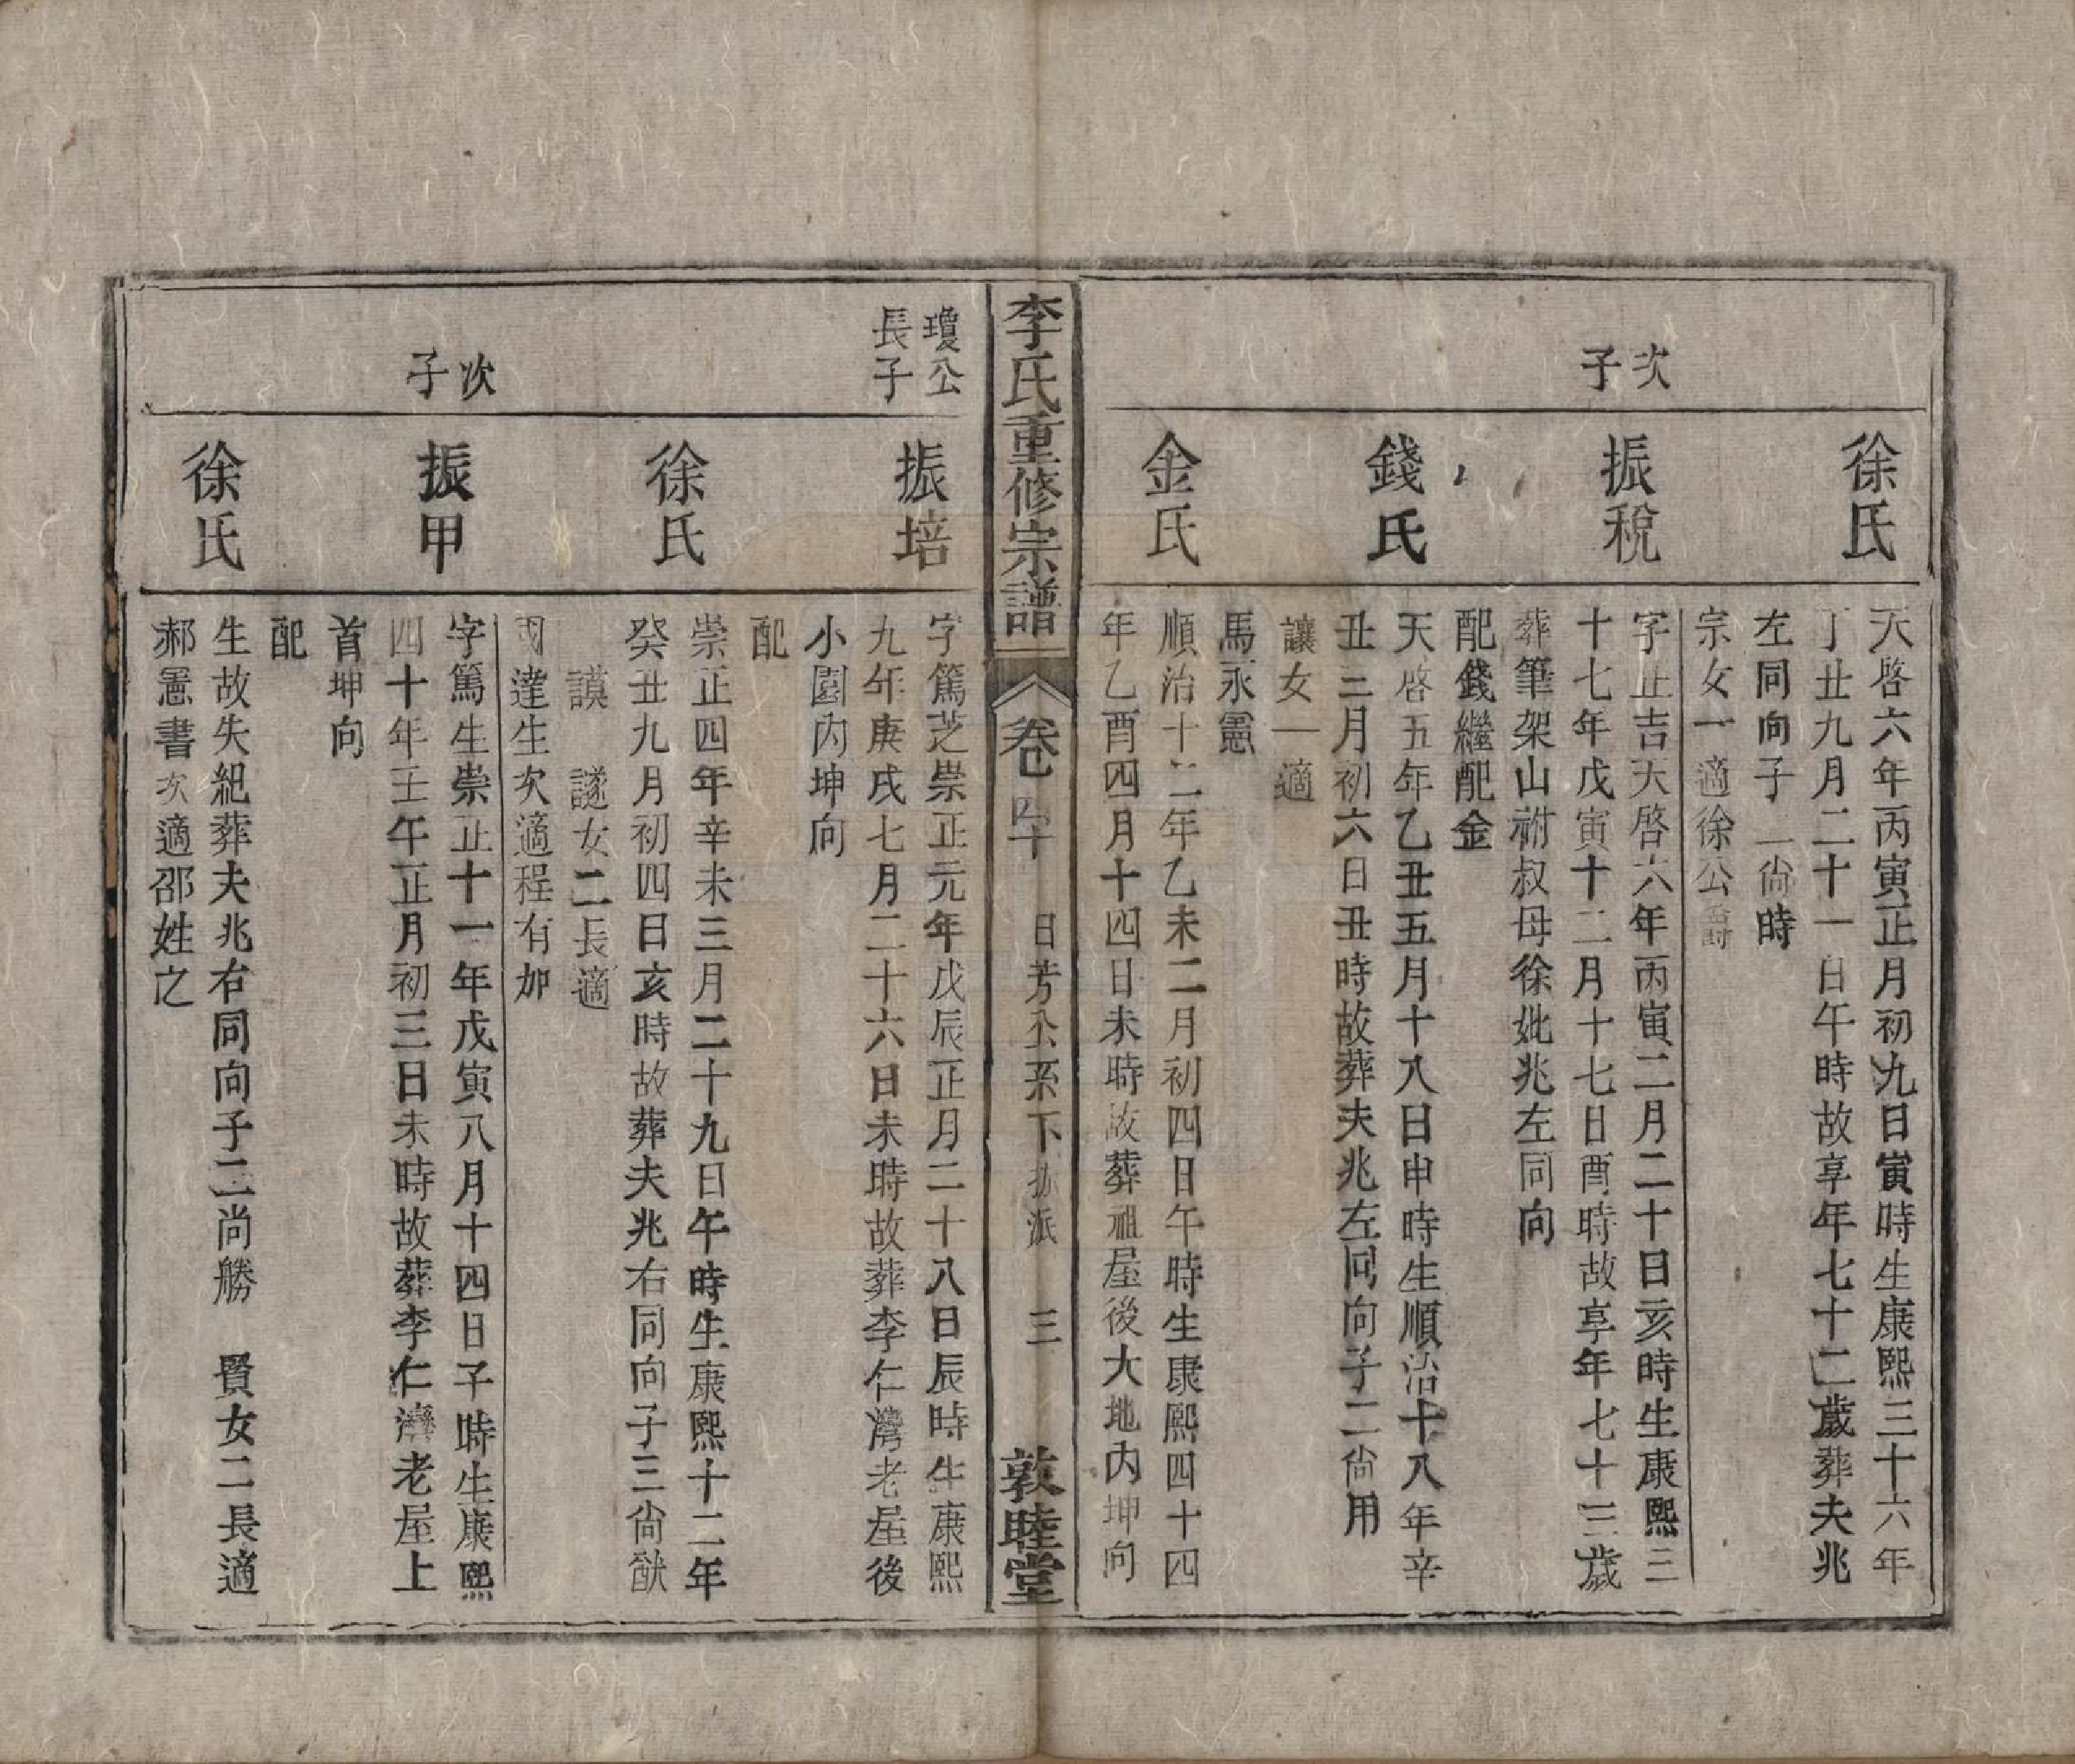 徐氏
天啓六年丙寅正月初九日寅時生康熙三十六年
丁丑九月二十一日午時故享年七十二歲葬夫兆
左同向子一尙時
宗女一適徐公
次子
振稅
字正吉天啓六年丙寅二月二十日亥時生康熙三
十七年戊寅十二月十七日酉時故享年七十三歲
葬筆架山祔叔母徐妣兆左同向
配錢繼配金
錢氏
天啓五年乙丑五月十八日申時生順治十八年辛
丑三月初六日丑時故葬夫兆左同向子二尙用
讓女一適
馬永憲
金氏
順治十二年乙未二月初四日午時生康熙四十四
年乙酉四月十四日未時故葬祖屋後大地內坤向
李氏重修宗譜
卷四十
日芳公系下振派
三
敦睦堂
瓊公長子
振培
字篤芝崇正元年戊辰正月二十八日辰時生康熙
九年庚戌七月二十六日未時故葬李仁灣老屋後
小園內坤向
配
徐氏
崇正四年辛未三月二十九日午時生康熙十二年
癸丑九月初四日亥時故葬夫兆右同向子三尙猷
謨 謎女二長適
國達生次適程有加
次子
振甲
字篤生崇正十一年戊寅八月十四日子時生康熙
四十年壬午正月初三日未時故葬李仁灣老屋上
首坤向
配
徐氏
生故失紀葬夫兆右同向子二尚勝 賢女二長適
郝憲書次適邵姓之